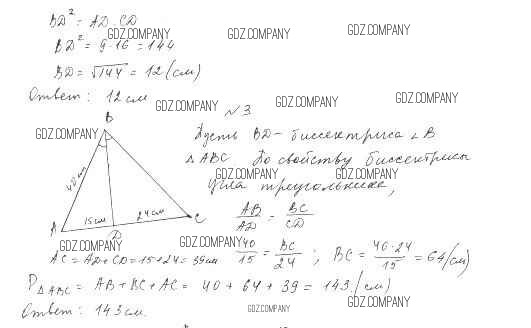 BD² = AD · CD
BD² = 9·16 = 144
BD = √144 = 12 (см)
Ответ: 12 см
№3
Пусть BD – биссектриса ∠B
△ABC По свойству биссектрисы
угла треугольника,
AB/AD = BC/CD
B
40 см
15 см
24 см
A
D
C
AC = AD + CD = 15 + 24 = 39 см
40/15 = BC/24 ; BC = 40·24/15 = 64 (см)
P△ABC = AB + BC + AC = 40 + 64 + 39 = 143 (см)
Ответ: 143 см.
GDZ.COMPANY
GDZ.COMPANY
GDZ.COMPANY
GDZ.COMPANY
GDZ.COMPANY
GDZ.COMPANY
GDZ.COMPANY
GDZ.COMPANY
GDZ.COMPANY
GDZ.COMPANY
GDZ.COMPANY
GDZ.COMPANY
GDZ.COMPANY